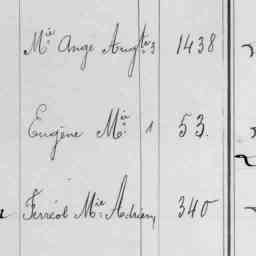 Mie Ange Augte 3 1438
Eugène Mie 1 53.
Ferréol Mie Adrien 340